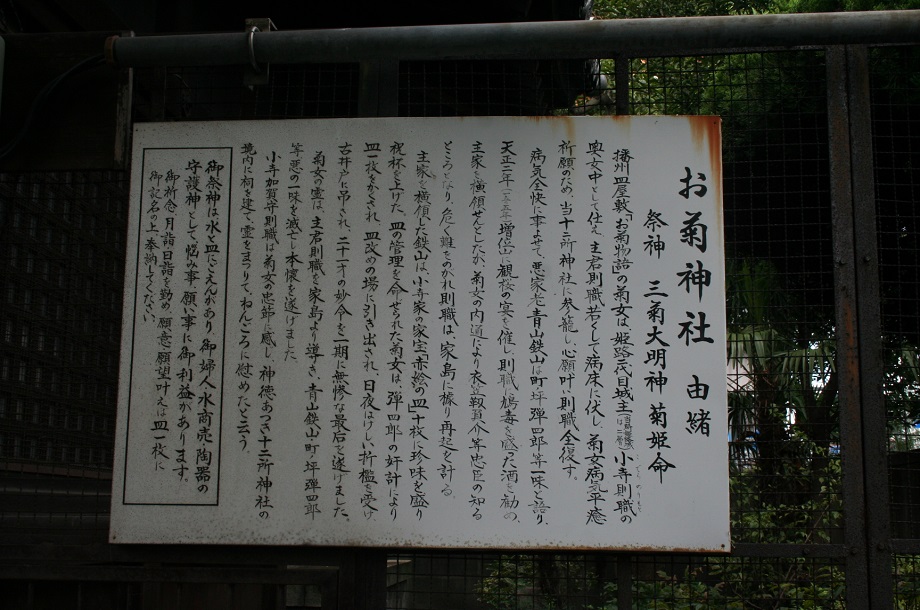 お菊神社 由緒
祭神 三菊大明神 菊姫命
播州皿屋敷、「お菊物語」の菊女は、姫路二代目城主小寺則職の
奥女中として仕え、主君則職若くして病床に伏し、菊女病気平癒
祈願のため、当十二所神社に参籠し、心願叶い則職全復す。
病気全快に事よせて、悪家老青山鉄山は町坪弾四郎等一味と語り、
天正二年増位山に観桜の宴を催し、則職に鴆毒を盛った酒を勧め、
主家を横領せんとしたが、菊女の内通により衣笠靱負介等忠臣の知る
ところとなり、危く難をのがれ則職は家島に據り再起を計る。
主家を横領した鉄山は、小寺家の家宝「赤絵の皿」十枚に珍味を盛り
祝杯を上げた。皿の管理を命ぜられた菊女は、弾四郎の奸計により
皿一枚をかくされ、皿改めの場に引き出され、日夜はげしい折檻を受け
古井戸に吊され、二十才の妙令を一期に無惨な最后を遂げました。
菊女の霊は、主君則職を家島より導き、青山鉄山、町坪弾四郎
等悪の一味を滅亡し本懐を遂げました。
小寺加賀守則職は菊女の忠節に感じ、神徳あつき十二所神社の
境内に祠を建て、霊をまつりてねんごろに慰めたと云う。
御祭神は、水と皿にごえんがあり、御婦人、水商売、陶器の
守護神として、悩み事、願い事に御利益があります。
御祈念、月詣、日詣を勤め、願意、願望叶えば皿一枚に
御記名の上、奉納してください。